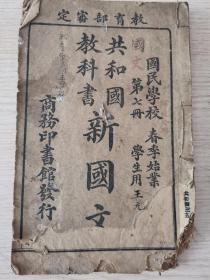 教育部審定
國民學校 春季始業
國文
第七冊 學生用
共和國
教科書
新國文
商務印書館發行